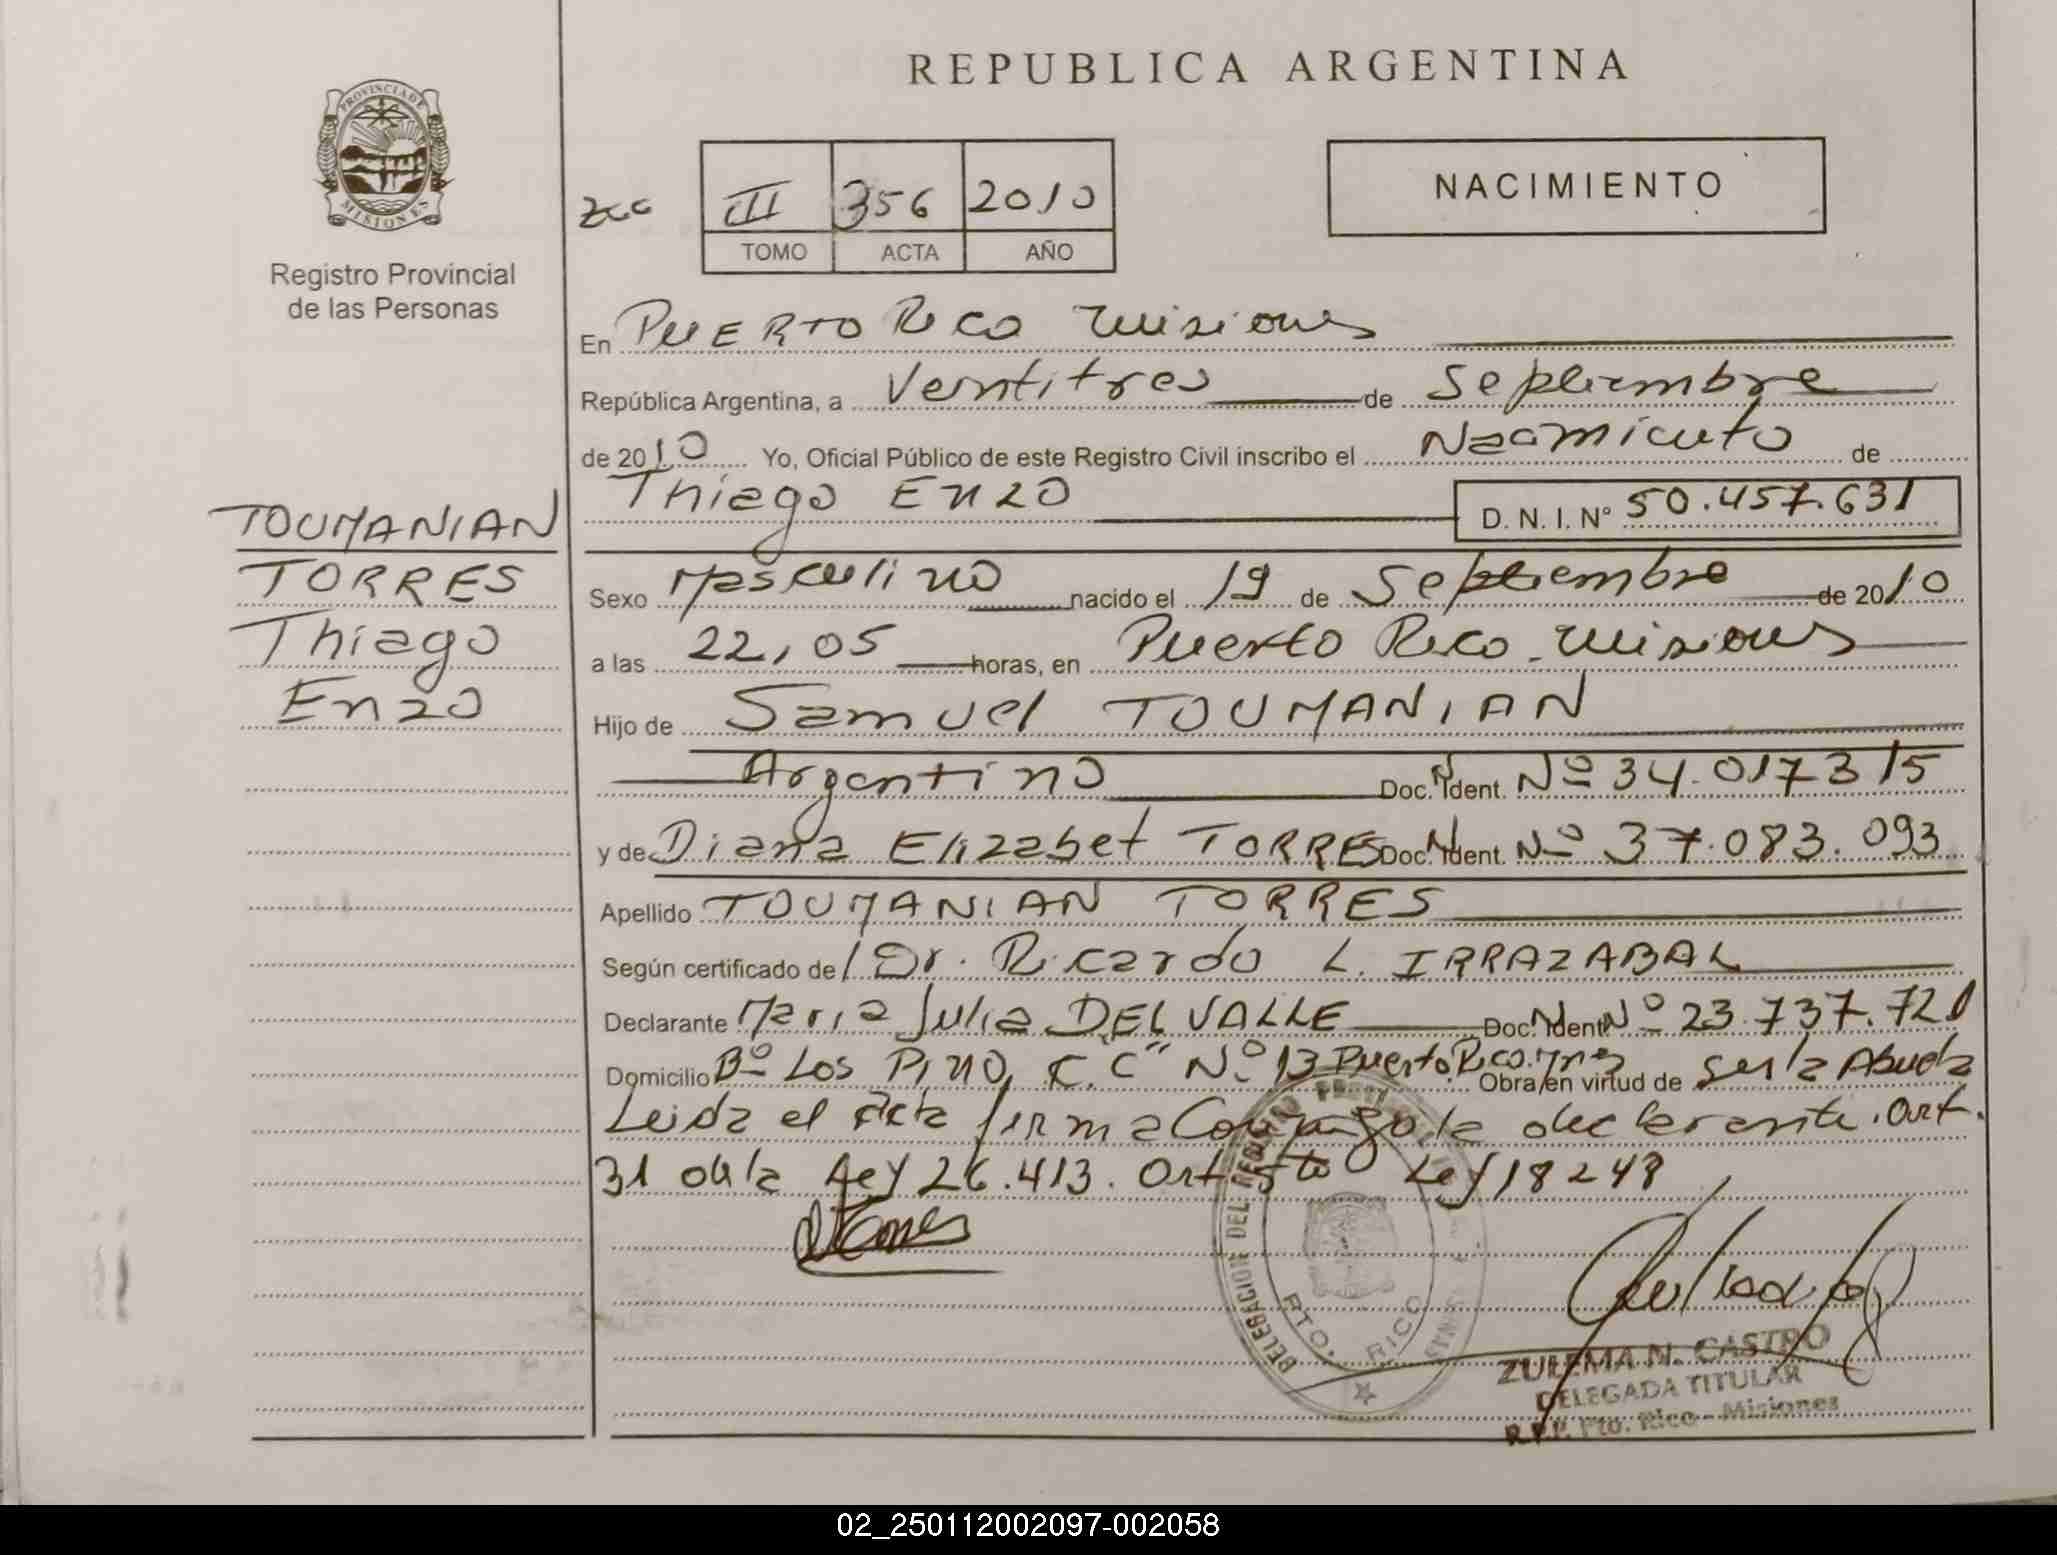 REPUBLICA ARGENTINA
PROVINCIA DE
MISIONES
Registro Provincial
de las Personas
III 356 2010
TOMO ACTA AÑO
NACIMIENTO
En PUERTO Rico Misiones
República Argentina, a Veintitres de Septiembre
de 2010 Yo, Oficial Público de este Registro Civil inscribo el Nacimiento de
Thiago Enzo D. N. I. N° 50.457.631
TOUMANIAN
TORRES
Thiago
Enzo
Sexo Masculino nacido el 19 de Septiembre de 2010
a las 22,05 horas, en Puerto Rico - Misiones
Hijo de Samuel TOUMANIAN
Argentino Doc. Ident. Nº 34.017315
y de Diana Elizabet TORRES Doc. Ident. Nº 37.083.093
Apellido TOUMANIAN TORRES
Según certificado de Dr. Ricardo L. IRRAZABAL
Declarante Maria Julia DEL VALLE Doc. Ident. Nº 23.737.721
Domicilio Bº Los Pino, "C" Nº 13 Puerto Rico. Mnes Obra en virtud de ser la Abuela
Leida el Acta firma Conmigo la declarante. Art.
31 de la Ley 26.413. Art 5to Ley 18248
DELEGACION DEL REGISTRO
PTO. RICO
ZULEMA N. CASTRO
DELEGADA TITULAR
R.P.P. Pto. Rico - Misiones
02_250112002097-002058